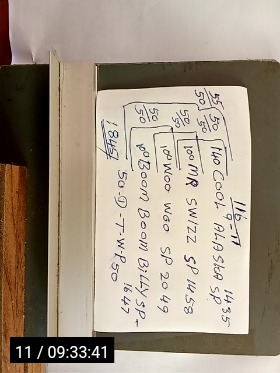 116-17
9
140 COOL ALASKA SP 1435
100 MR SWIZZ SP 1458
100 WOO WOO SP 2049
100 BOOM BOOM BILLY SP- 1647
50-①-T-W-P-50
50
50
50
50
50
50
11 / 09:33:41